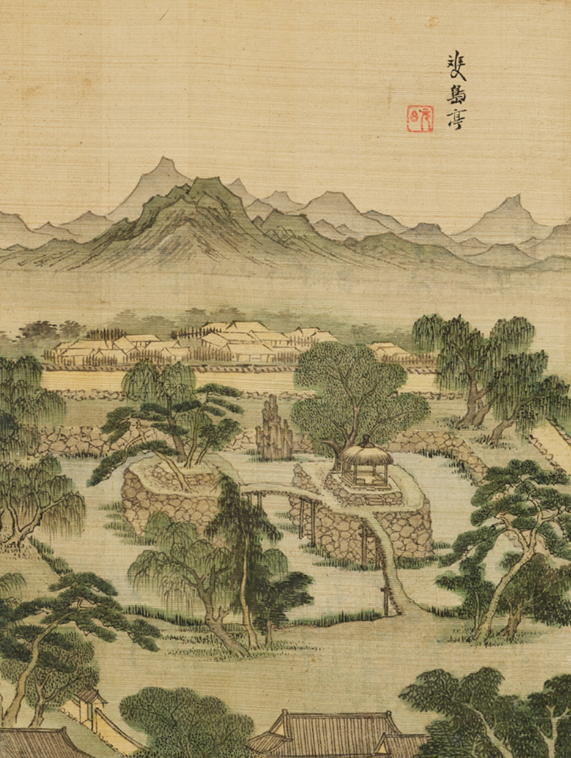 雙島亭